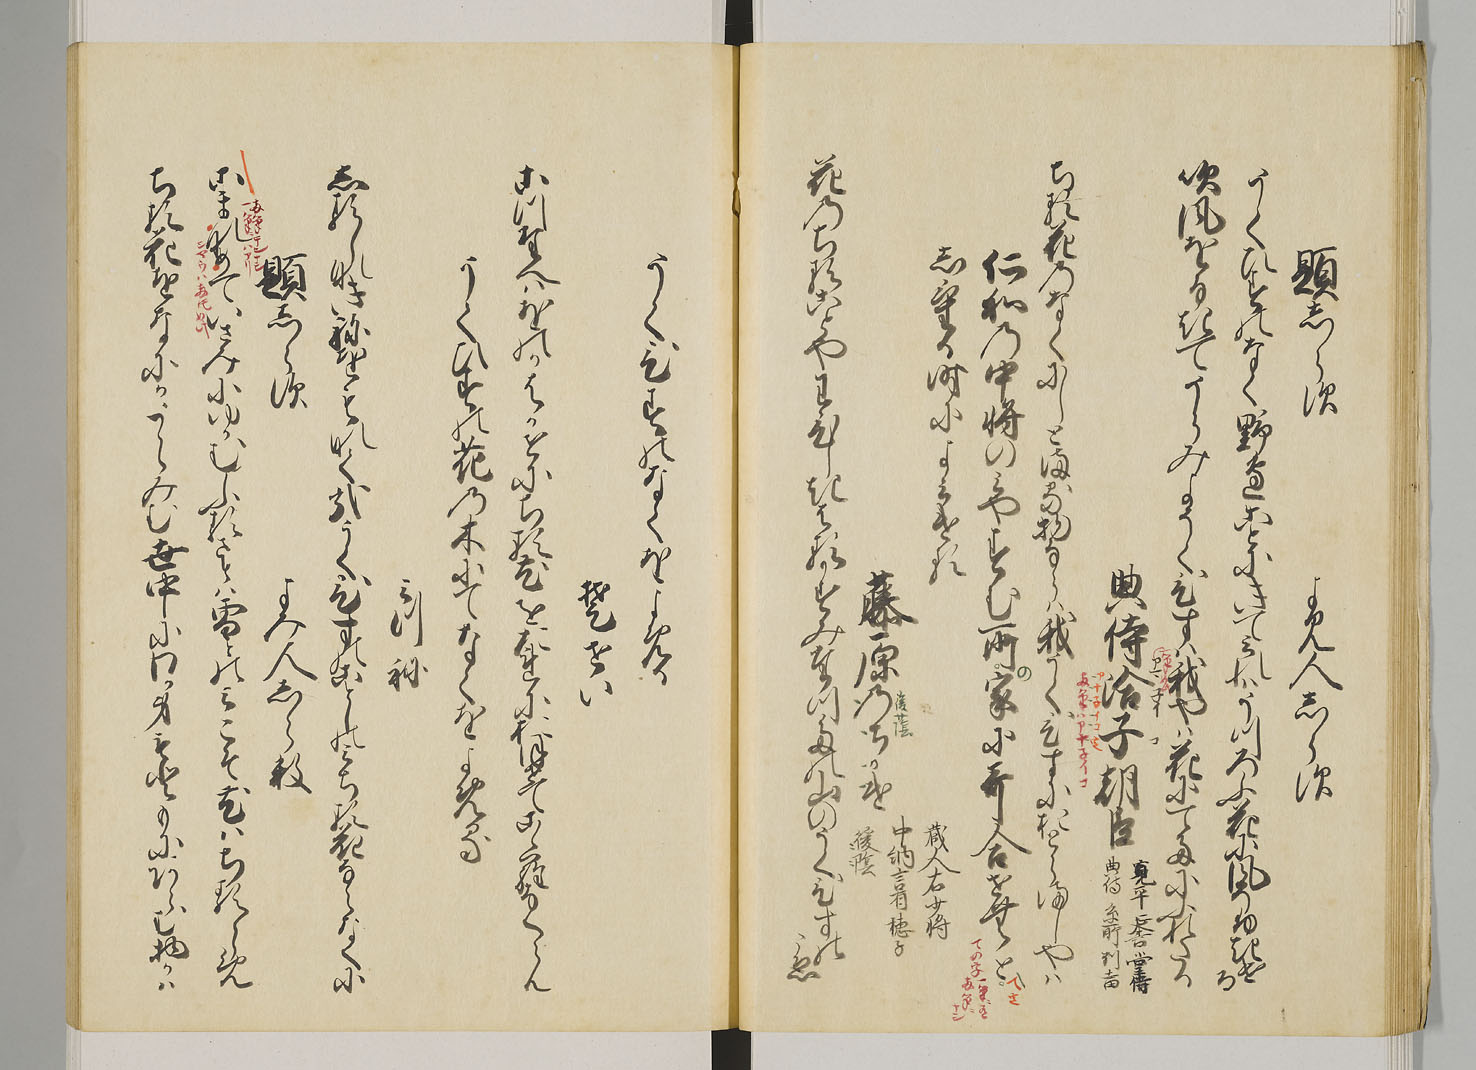 題しらす　よみ人しらす
うくひすのなく野辺ことにきてみれはうつろふ花に風そふきける
吹風をなきてうらみようくひすは我やは花に手たにふれたる
典侍洽子朝臣
ちる花のなくにしとまる物ならは我うくひすにおとらましやは
仁和の中将のみやすむ所の家に哥合せむと
しける時によみける
藤原のちかけ
後蔭
蔵人右少将
中納言有穂子
後蔭
花のちることやわひしきはるかすみたつたの山のうくひすのこゑ
うくひすのなくをよめる
そせい
こつたへはおのかはかせにちる花をたれにおほせてこゝらなくらん
うくひすの花の木にてなくをよめる
みつね
しるしなきねをもなくかなうくひすのことしのみちる花ならなくに
題しらす　よみ人しらす
こまなめていさみにゆかむふるさとは雪とのみこそ花はちるらめ
ちる花をなにかうらみむ世中にわか身もともにあらむ物かは